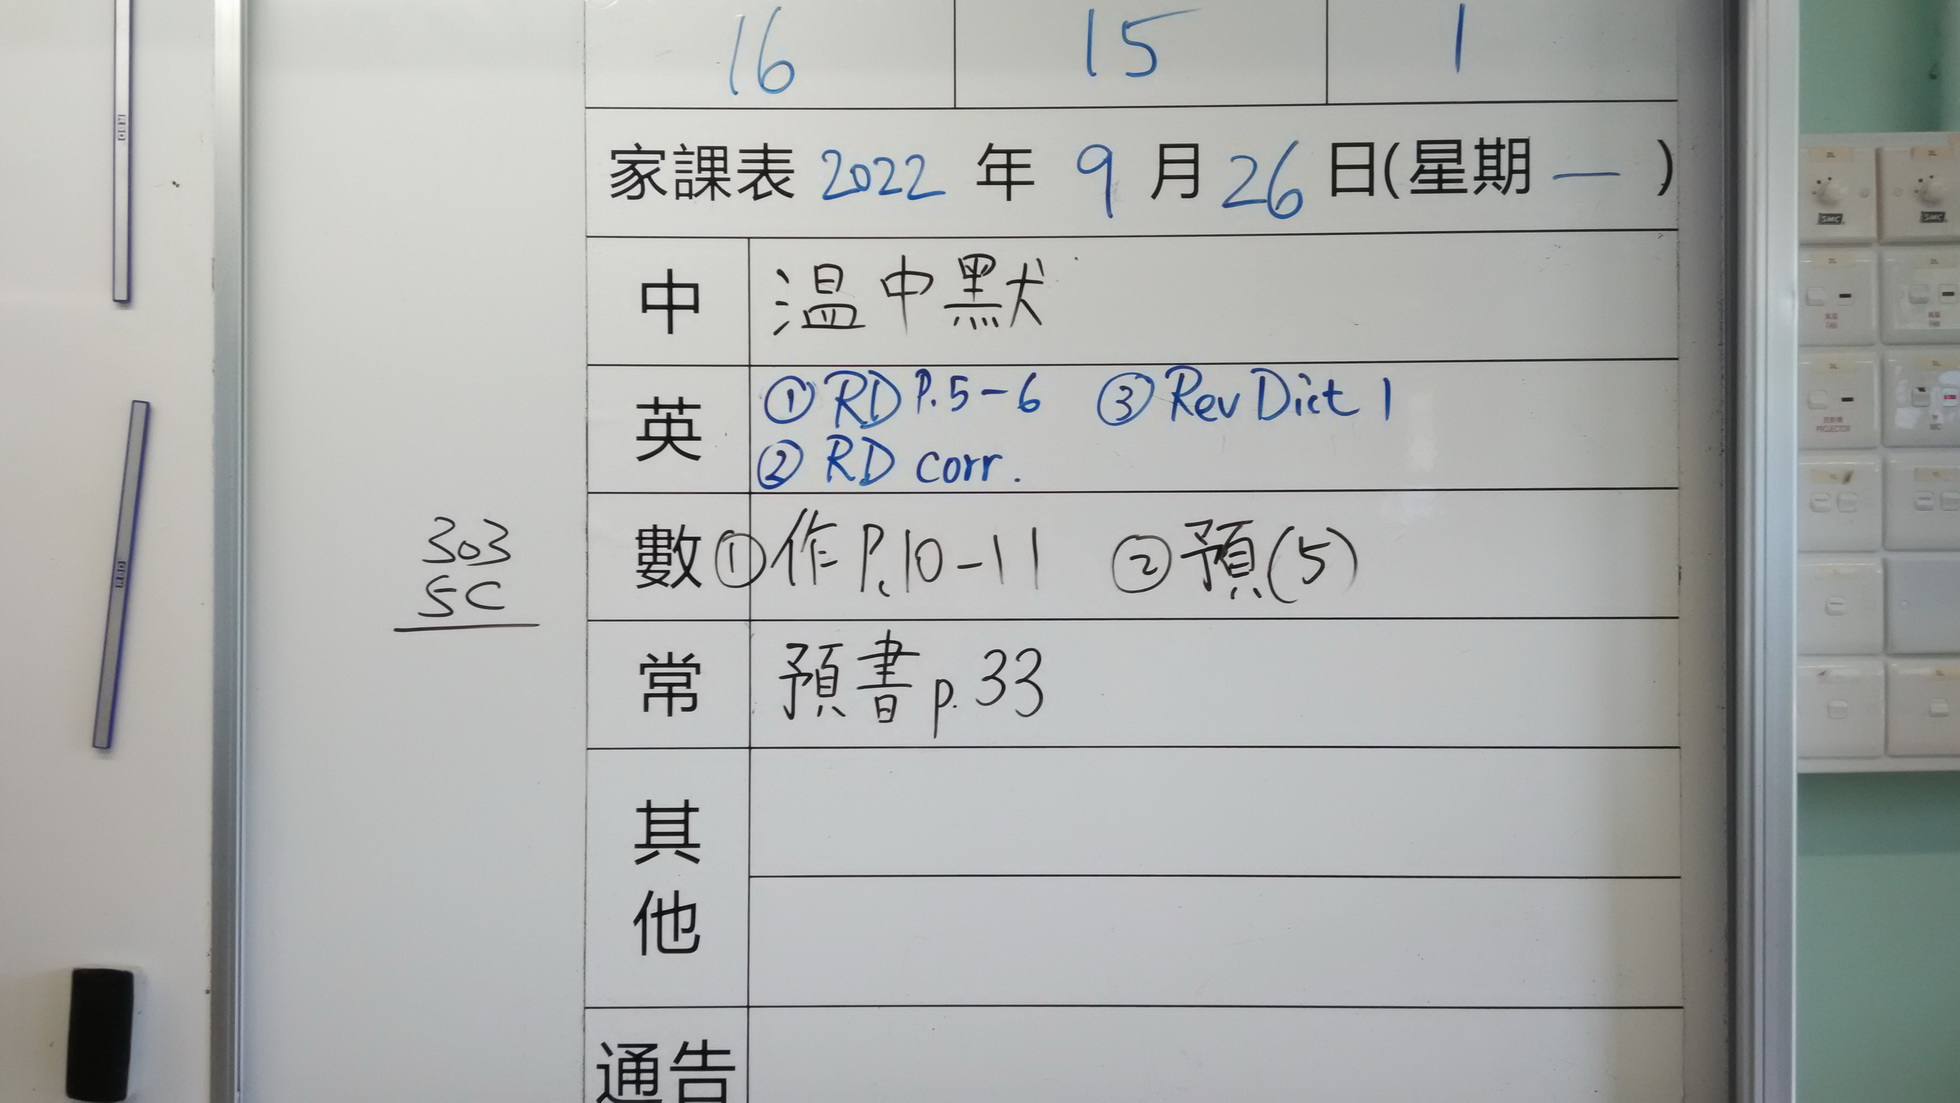 16 15 1
家課表 2022 年 9 月 26 日(星期 一 )
中 温中默
英 ① RD P.5-6 ③ Rev Dict 1
② RD corr.
數 ① 作 P.10-11 ② 預(5)
303
5C
常 預書 p.33
其他
通告